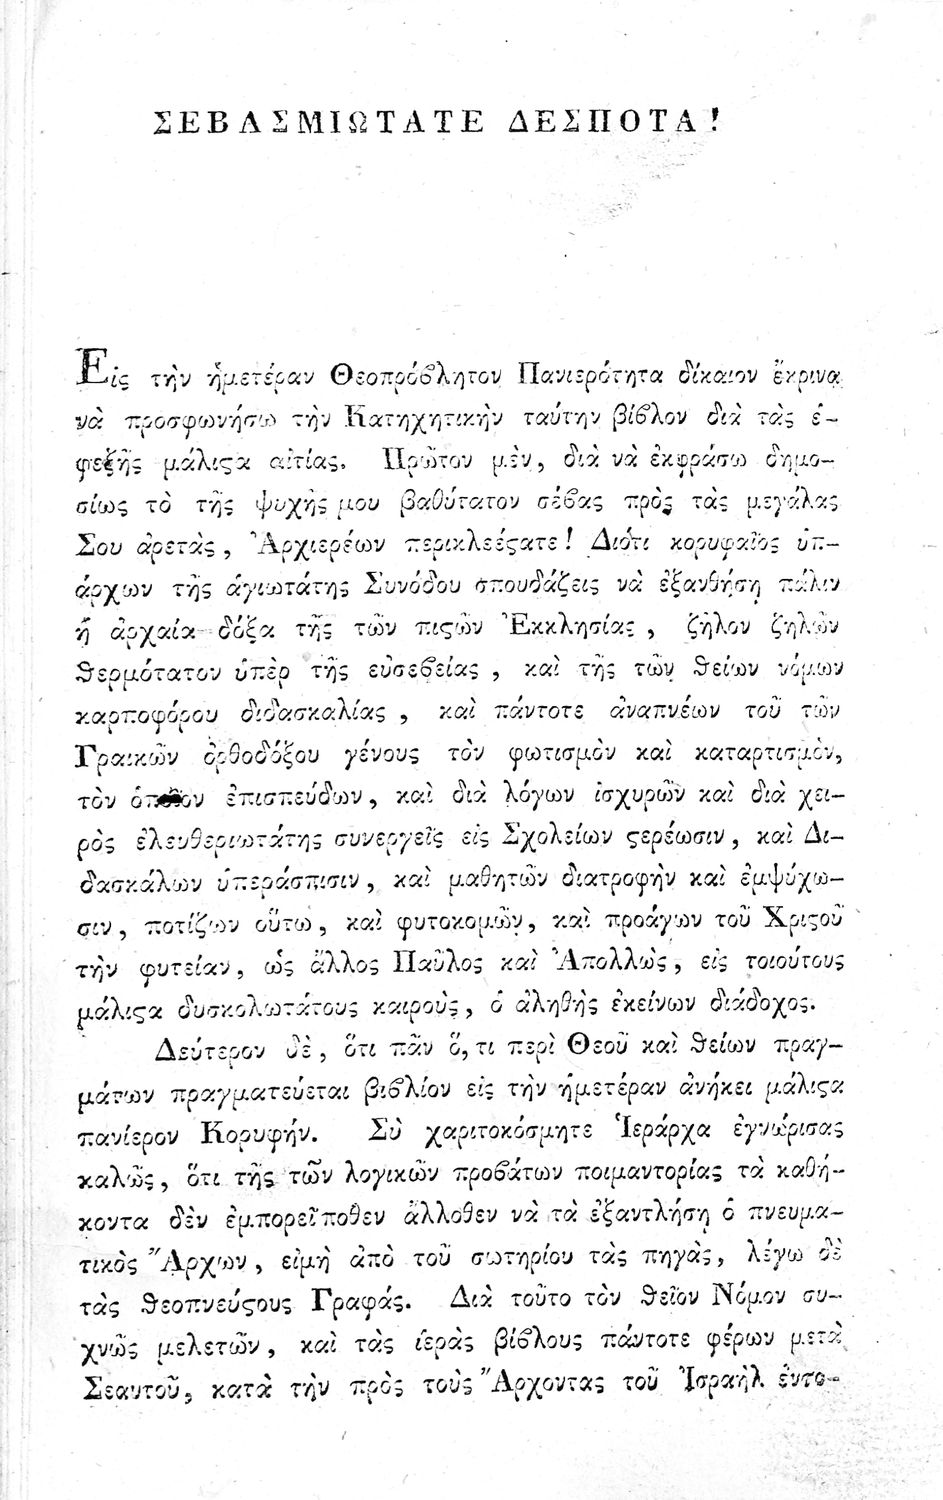 ΣΕΒΑΣΜΙΩΤΑΤΕ ΔΕΣΠΟΤΑ!
Εἰς τὴν ἡμετέραν Θεοπρόβλητον Πανιερότητα δίκαιον ἔκρινα
νὰ προσφωνήσω τὴν Κατηχητικὴν ταύτην βίβλον διὰ τὰς ἐ-
φεξῆς μάλιϛα αἰτίας. Πρῶτον μὲν, διὰ νὰ ἐκφράσω δημο-
σίως τὸ τῆς ψυχῆς μου βαθύτατον σέβας πρὸς τὰς μεγάλας
Σου ἀρετὰς, Ἀρχιερέων περικλεέϛατε! Διότι κορυφαῖος ὑπ-
άρχων τῆς ἁγιωτάτης Συνόδου σπουδάζεις νὰ ἐξανθήσῃ πάλιν
ἡ ἀρχαία δόξα τῆς τῶν πιϛῶν Ἐκκλησίας, ζῆλον ζηλῶν
θερμότατον ὑπὲρ τῆς εὐσεβείας, καὶ τῆς τῶν θείων νόμων
καρποφόρου διδασκαλίας, καὶ πάντοτε ἀναπνέων τοῦ τῶν
Γραικῶν ὀρθοδόξου γένους τὸν φωτισμὸν καὶ καταρτισμὸν,
τὸν ὁποῖον ἐπισπεύδων, καὶ διὰ λόγων ἰσχυρῶν καὶ διὰ χει-
ρὸς ἐλευθεριωτάτης συνεργεῖς εἰς Σχολείων ϛερέωσιν, καὶ Δι-
δασκάλων ὑπεράσπισιν, καὶ μαθητῶν διατροφὴν καὶ ἐμψύχω-
σιν, ποτίζων οὕτω, καὶ φυτοκομῶν, καὶ προάγων τοῦ Χριϛοῦ
τὴν φυτείαν, ὡς ἄλλος Παῦλος καὶ Ἀπολλὼς, εἰς τοιούτους
μάλιϛα δυσκολωτάτους καιροὺς, ὁ ἀληθὴς ἐκείνων διάδοχος.
Δεύτερον δὲ, ὅτι πᾶν ὅ,τι περὶ Θεοῦ καὶ θείων πραγ-
μάτων πραγματεύεται βιβλίον εἰς τὴν ἡμετέραν ἀνήκει μάλιϛα
πανίερον Κορυφήν. Σὺ χαριτοκόσμητε Ἱεράρχα ἐγνώρισας
καλῶς, ὅτι τῆς τῶν λογικῶν προβάτων ποιμαντορίας τὰ καθή-
κοντα δὲν ἐμπορεῖ ποθεν ἄλλοθεν νὰ τὰ ἐξαντλήσῃ ὁ πνευμα-
τικὸς Ἄρχων, εἰμὴ ἀπὸ τοῦ σωτηρίου τὰς πηγὰς, λέγω δὲ
τὰς θεοπνεύϛους Γραφάς. Διὰ τοῦτο τὸν θεῖον Νόμον συ-
χνῶς μελετῶν, καὶ τὰς ἱερὰς βίβλους πάντοτε φέρων μετὰ
Σεαυτοῦ, κατὰ τὴν πρὸς τοὺς Ἄρχοντας τοῦ Ἰσραὴλ ἐντο-